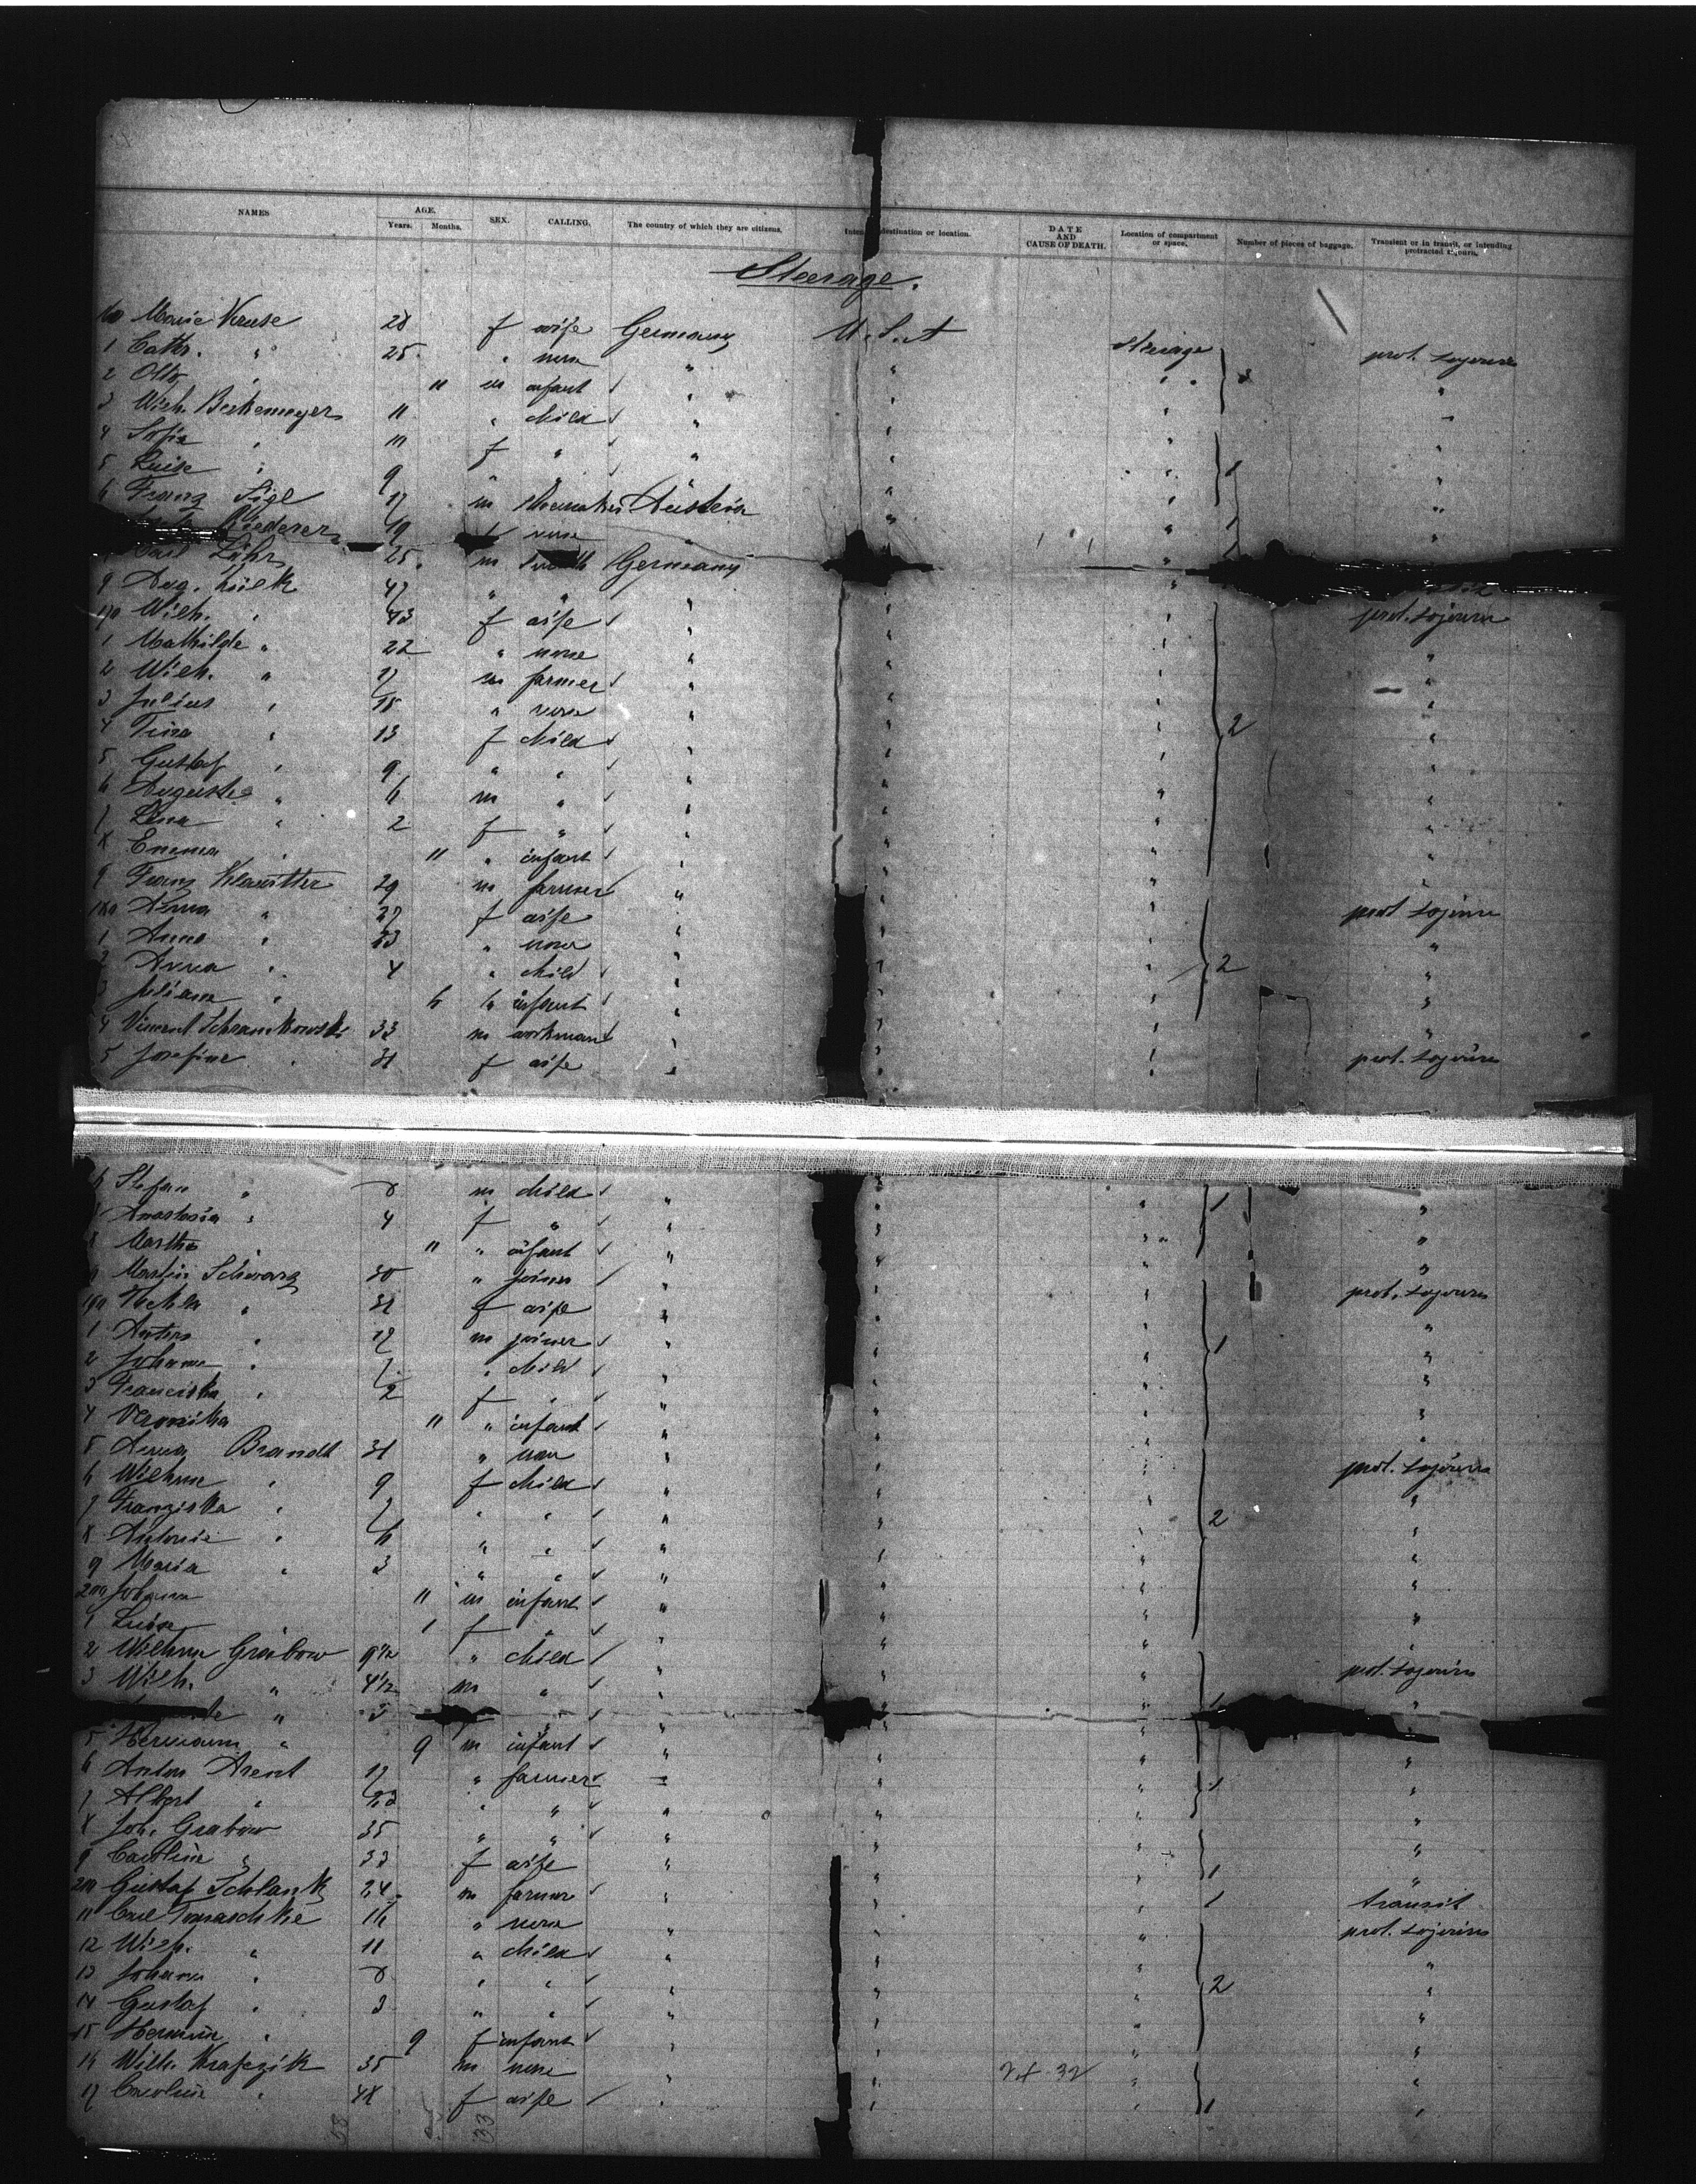 NAMES AGE. SEX. CALLING. The country of which they are citizens. destination or location. DATE AND CAUSE OF DEATH. Location of compartment or space. Number of pieces of baggage. Transient or in transit, or intending protracted
Years. Months.
Steerage.
Marie Kruse 28 f wife Germany U.S.A
1 Cath. " 25 " none " " Steerage prot. sojourn
2 Otto " 11 m infant " " " 3 "
3 Wilh. Beckemeyer 11 " child " " "
4 Sofie " 10 f " " " " "
5 Luise " 9 " " " " " 1 "
6 Franz Sigl 17 m Austria " " "
Riederer 19 f none " " " 1 "
Carl Lühr 25 m Germany " "
9 Aug. Lülk 47 " " " " "
170 Wilh. " 43 f wife " " " prot. sojourn
1 Mathilde " 22 " none " " " "
2 Wilh. " 17 m farmer " " " "
3 Julius " 15 " none " " " "
4 Tina " 13 f child " " " 2 "
5 Gustaf " 9 " " " " " "
6 Auguste " 6 m " " " " "
7 Lina " 2 f " " " " "
8 Emma " 11 " infant " " " "
9 Franz Klawitter 29 m farmer " " " "
180 Anna " 27 f wife " " " prot sojourn
1 Anna " 53 " none " " " "
2 Anna " 4 " child " " " 2 "
3 Juliana " 6 " infant " " " "
4 Vincent Schramkowski 33 m workman " " " "
5 Josefine " 31 f wife " " " prot. sojourn
6 Stefan " 8 m child " " " 1 "
7 Anastasia " 4 f " " " " "
8 Martha " 11 " infant " " " "
9 Martin Schwarz 30 " joiner " " " prot. sojourn
190 Thekla " 31 f wife " " " "
1 Anton " 17 m joiner " " " 1 "
2 Johann " 7 " child " " " "
3 Franciska " 2 f " " " " "
4 Veronika 11 " infant " " " "
5 Anna Brandt 31 " none " " " prot. sojourn
6 Wilhme " 9 f child " " " "
7 Franziska " 7 " " " " " 2 "
8 Antonie " 6 " " " " " "
9 Maria " 3 " " " " " "
200 Johann 11 m infant " " " "
1 Luise " 1 f " " " " "
2 Wilhme Grabow 9 1/2 " child " " " prot. sojourn
3 Wilh. " 4 1/2 m " " " " "
5 Hermann " 9 m infant " " " "
6 Anton Arent 17 " farmer " " " 1 "
7 Albert " 23 " " " " " "
8 Joh. Grabow 35 " " " " " "
9 Caroline " 33 f wife " " " 1 "
210 Gustaf Schlank 24 m farmer " " " 1 transit
11 Carl Tomaschke 16 " none " " " prot. sojourn
12 Wilh. " 11 " child " " " "
13 Johann " 8 " " " " " 2 "
14 Gustaf " 3 " " " " " "
15 Hermine " 9 f infant " " " "
16 Wilh. Krafczik 35 m none " " "
17 Caroline " 48 f wife " " " 1 "
33